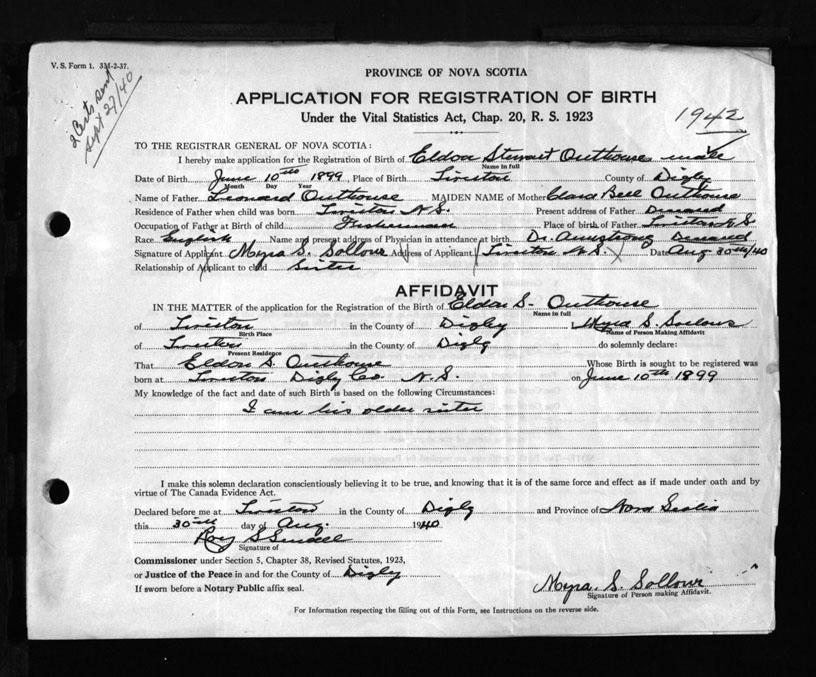 V. S. Form 1. 331-2-37.
2 Certs sent
Sept 27/40
PROVINCE OF NOVA SCOTIA
APPLICATION FOR REGISTRATION OF BIRTH
Under the Vital Statistics Act, Chap. 20, R. S. 1923
1942
TO THE REGISTRAR GENERAL OF NOVA SCOTIA:
I hereby make application for the Registration of Birth of Eldon Stewart Outhouse male
Name in full
Date of Birth June 10th 1899, Place of Birth Tiviston County of Digby
Month Day Year
Name of Father Leonard Outhouse MAIDEN NAME of Mother Clara Bell Outhouse
Residence of Father when child was born Tiviston N.S. Present address of Father Deceased
Occupation of Father at Birth of child Fisherman Place of birth of Father Tiviston N S
Race English Name and present address of Physician in attendance at birth Dr. Armstrong Deceased
Signature of Applicant Myra S. Sollows Address of Applicant Tiviston N.S. Date Aug 30th/40
Relationship of Applicant to child Sister
AFFIDAVIT
IN THE MATTER of the application for the Registration of the Birth of Eldon S. Outhouse
Name in full
of Tiviston in the County of Digby I, Myra S. Sollows
Birth Place Name of Person Making Affidavit
of Tiviston in the County of Digby do solemnly declare:
Present Residence
That Eldon S. Outhouse Whose Birth is sought to be registered was
born at Tiviston Digby Co. N.S. on June 10th 1899
My knowledge of the fact and date of such Birth is based on the following Circumstances:
I am his older sister
I make this solemn declaration conscientiously believing it to be true, and knowing that it is of the same force and effect as if made under oath and by
virtue of The Canada Evidence Act.
Declared before me at Tiviston in the County of Digby and Province of Nova Scotia
this 30th day of Aug. 1940
Roy S
Signature of
Commissioner under Section 5, Chapter 38, Revised Statutes, 1923,
or Justice of the Peace in and for the County of Digby
If sworn before a Notary Public affix seal.
Myra. S. Sollows
Signature of Person making Affidavit.
For Information respecting the filling out of this Form, see Instructions on the reverse side.